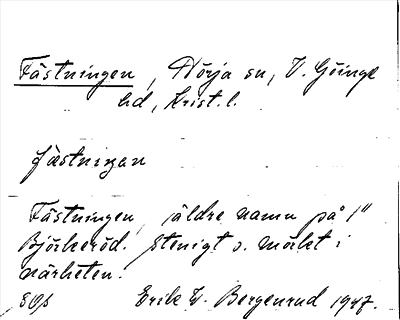 Fästningen, Nörja sn, V. Göinge
hd, Krist. l.
fästnigan
Fästningen, äldre namn på 1"
Björkeröd. Stenigt o. mörkt i
närheten.
Erik W. Bergenrud 1947.